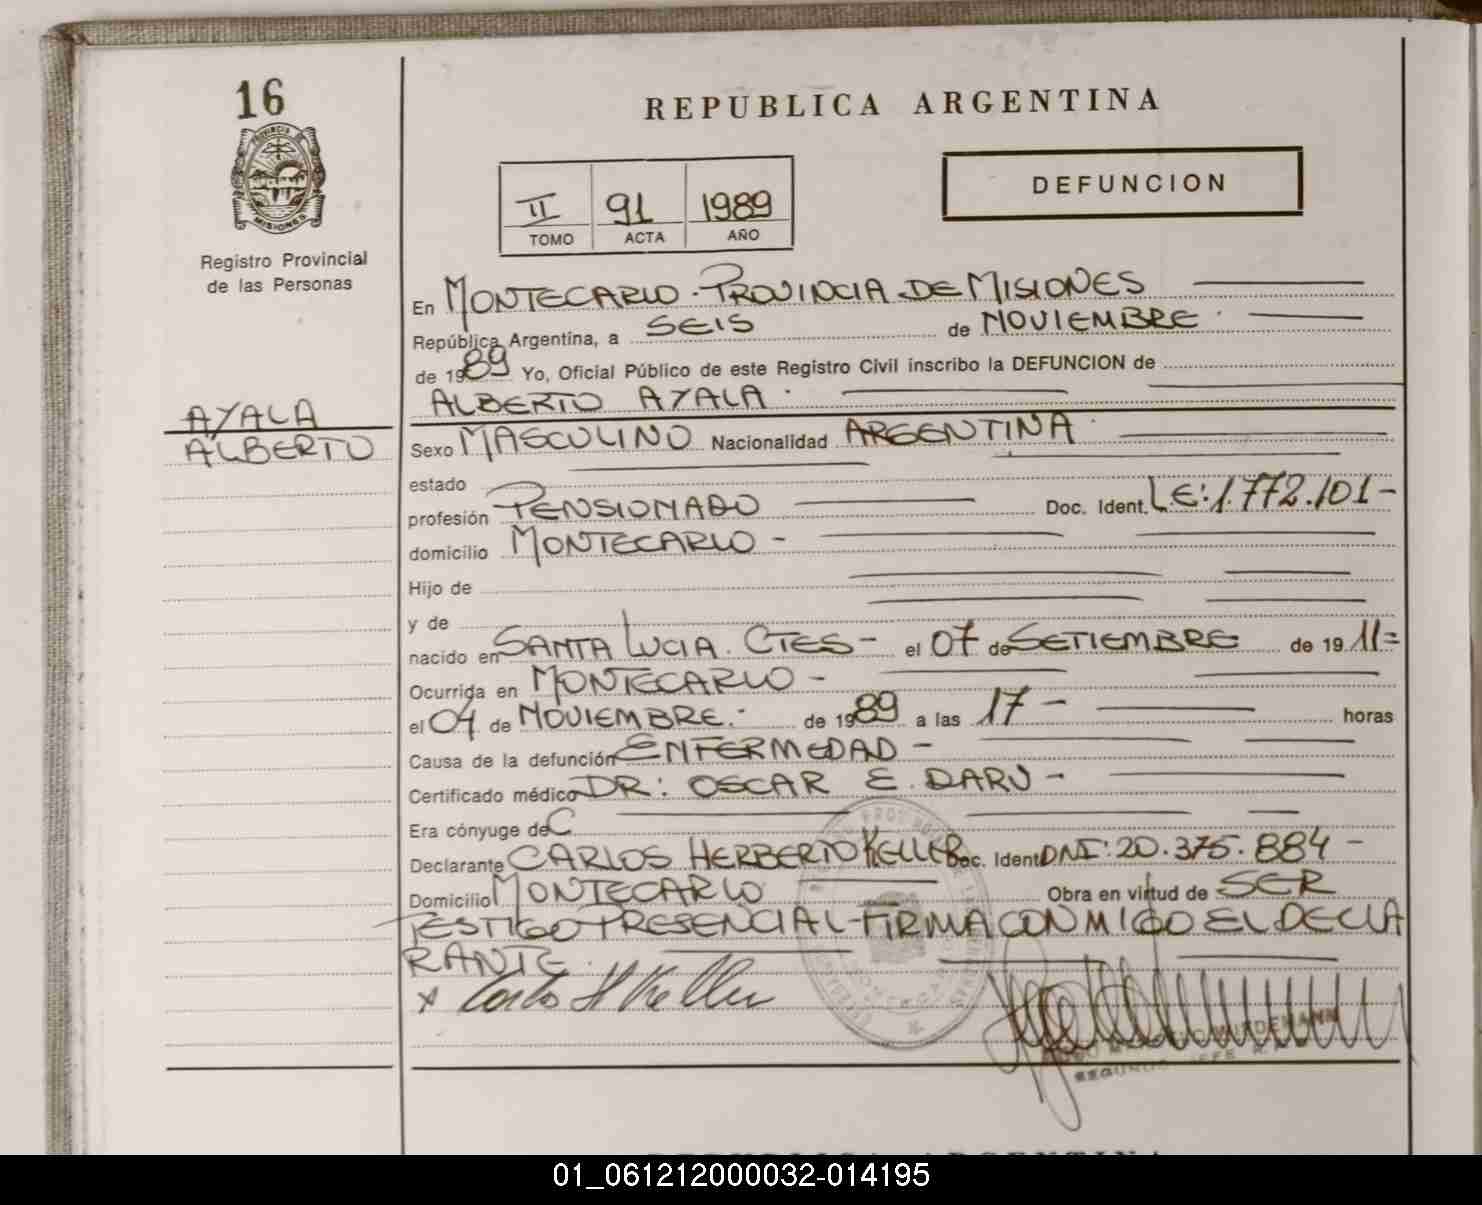 16
PROVINCIA DE
MISIONES
Registro Provincial
de las Personas
AYALA
ALBERTO
REPUBLICA ARGENTINA
II 91 1989
TOMO ACTA AÑO
DEFUNCION
En MONTECARLO. PROVINCIA DE MISIONES
República Argentina, a SEIS de NOVIEMBRE
de 1989 Yo, Oficial Público de este Registro Civil inscribo la DEFUNCION de
ALBERTO AYALA.
Sexo MASCULINO Nacionalidad ARGENTINA
estado
profesión PENSIONADO Doc. Ident. L.E: 1.772.101-
domicilio MONTECARLO -
Hijo de
y de
nacido en SANTA LUCIA. CTES - el 07 de SETIEMBRE de 1911=
Ocurrida en MONTECARLO -
el 04 de NOVIEMBRE.- de 1989 a las 17 - horas
Causa de la defunción ENFERMEDAD -
Certificado médico DR: OSCAR E. DARU -
Era cónyuge de
Declarante CARLOS HERBERTO KELLER Doc. Ident DNI: 20.375.884 -
Domicilio MONTECARLO Obra en virtud de SER
TESTIGO PRESENCIAL - FIRMA CONMIGO EL DECLA
RANTE.
x Carlos H Keller
WIEDEMANN
SEGUNDO JEFE
REPUBLICA ARGENTINA
01_061212000032-014195